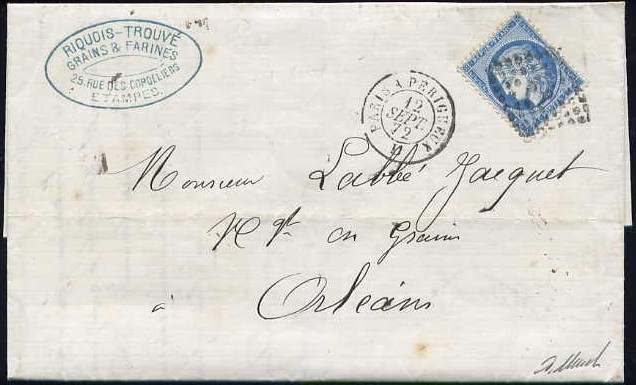 RIQUOIS-TROUVÉ
GRAINS & FARINES
25, RUE DES CORDELIERS
ETAMPES.
PARIS A PERIGUEUX
12
SEPT.
72
Monsieur Labbé Jacquet
Nt en Grains
à Orléans